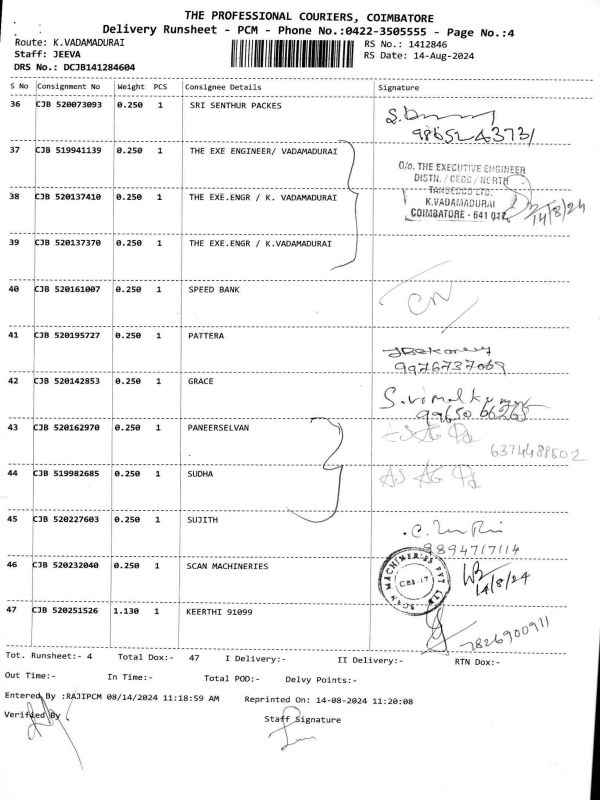 THE PROFESSIONAL COURIERS, COIMBATORE
Delivery Runsheet - PCM - Phone No.:0422-3505555 - Page No.:4
Route: K.VADAMADURAI RS No.: 1412846
Staff: JEEVA RS Date: 14-Aug-2024
DRS No.: DCJB141284604
S No Consignment No Weight PCS Consignee Details Signature
36 CJB 520073093 0.250 1 SRI SENTHUR PACKES
37 CJB 519941139 0.250 1 THE EXE ENGINEER/ VADAMADURAI
O/o. THE EXECUTIVE ENGINEER
DISTN. / CEDC / NORTH
TANGEDCO LTD.
38 CJB 520137410 0.250 1 THE EXE.ENGR / K. VADAMADURAI
K.VADAMADURAI
COIMBATORE - 641 017.
14/8/24
39 CJB 520137370 0.250 1 THE EXE.ENGR / K.VADAMADURAI
40 CJB 520161007 0.250 1 SPEED BANK
41 CJB 520195727 0.250 1 PATTERA
9976737069
42 CJB 520142853 0.250 1 GRACE
S.vimalkumar
43 CJB 520162970 0.250 1 PANEERSELVAN
6374488502
44 CJB 519982685 0.250 1 SUDHA
45 CJB 520227603 0.250 1 SUJITH
9894717114
46 CJB 520232040 0.250 1 SCAN MACHINERIES
SCAN MACHINERIES PVT LTD
14/8/24
47 CJB 520251526 1.130 1 KEERTHI 91099
7826900911
Tot. Runsheet:- 4 Total Dox:- 47 I Delivery:- II Delivery:- RTN Dox:-
Out Time:- In Time:- Total POD:- Delvy Points:-
Entered By :RAJIPCM 08/14/2024 11:18:59 AM Reprinted On: 14-08-2024 11:20:08
Verified By Staff Signature